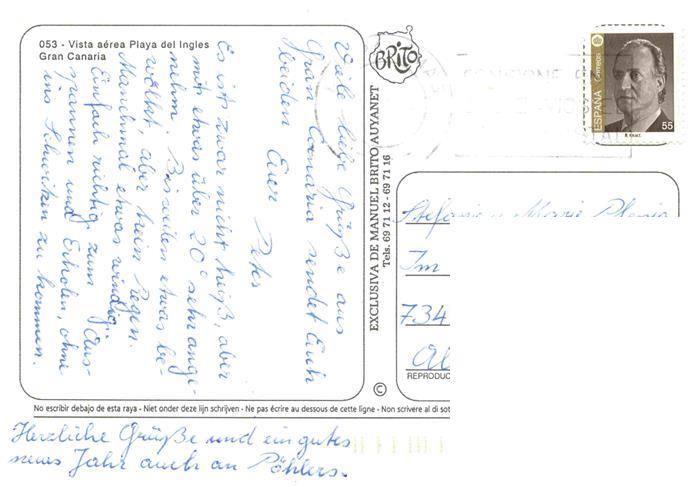 053 - Vista aérea Playa del Ingles
Gran Canaria
Viele liebe Grüße aus
Gran Canaria sendet Euch
beiden Euer
Peter
Es ist zwar nicht heiß, aber
mit etwas über 20° sehr ange-
nehm. Bisweilen etwas be-
wölkt, aber kein Regen.
Manchmal etwas windig.
Einfach richtig zum Aus-
spannen und Erholen, ohne
ins Schwitzen zu kommen.
BRITO
EXCLUSIVA DE MANUEL BRITO AUYANET
Tels. 69 71 12 - 69 71 16
©
Correos
ESPAÑA
55
Stefanie u. Marie
Im
734
REPRODUC
No escribir debajo de esta raya - Niet onder deze lijn schrijven - Ne pas écrire au dessous de cette ligne - Non scrivere al di sot
Herzliche Grüße und ein gutes
neues Jahr auch an Pöhlers.